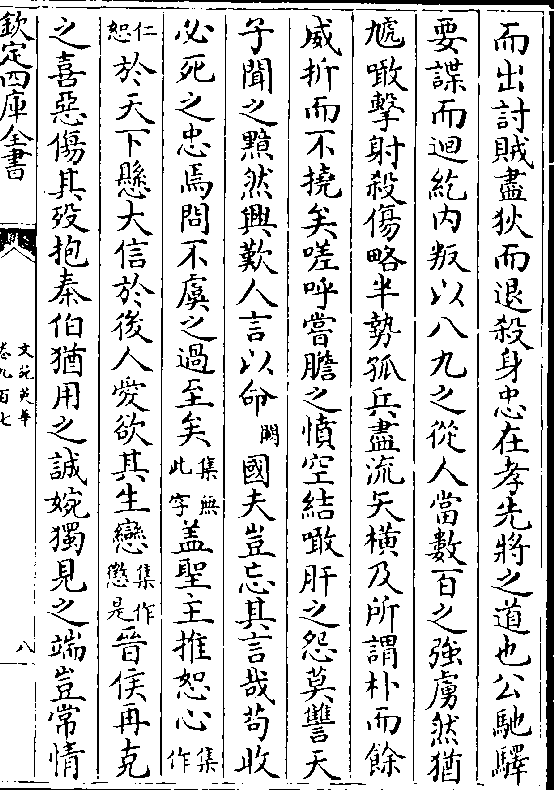 而出討賊盡狄而退殺身忠在孝先將之道也公馳驛
要諜而迴紇内叛以八九之從人當數百之強虜然猶
虓噉擊射殺傷略半勢孤兵盡流矢橫及所謂朴而餘
威折而不撓矣嗟呼嘗膽之憤空結噉肝之怨莫讐天
子聞之黯然興歎人言以命闕國夫豈忘其言哉苟收
必死之忠焉問不虞之過至矣集無此字盖聖主推恕心集作
仁恕於天下懸大信於後人愛欲其生戀集作懲是晉侯再克
之喜惡傷其歿抱秦伯猶用之誠婉獨見之端豈常情
欽定四庫全書
文苑英華
卷九百七
八